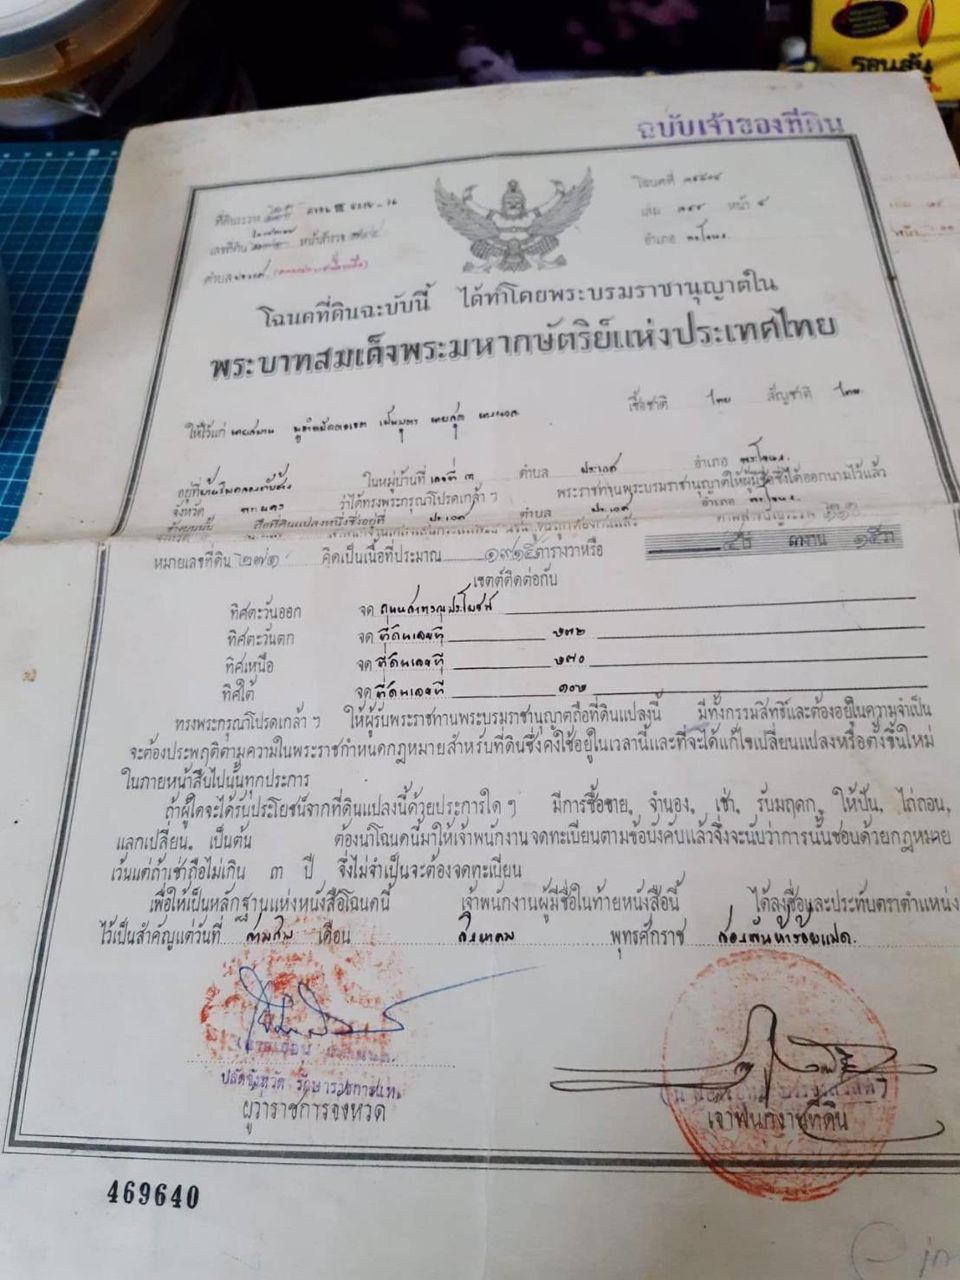 รอนสัน
ฉบับเจ้าของที่ดิน
โฉนดที่
เล่ม หน้า ๔
เลขที่ดิน หน้าสำรวจ
อำเภอ พระโขนง.
ตำบล
โฉนดที่ดินฉะบับนี้ ได้ทำโดยพระบรมราชานุญาตใน
พระบาทสมเด็จพระมหากษัตริย์แห่งประเทศไทย
ให้ไว้แก่ นายสมาน เชื้อชาติ ไทย สัญชาติ ไทย
อยู่ที่บ้าน ในหมู่บ้านที่ เลขที่ ๓ ตำบล ประเวศ อำเภอ พระโขนง.
จังหวัด พระนคร ว่าได้ทรงพระกรุณาโปรดเกล้า ฯ พระราชทานพระบรมราชานุญาตให้ผู้มีชื่อซึ่งได้ออกนามไว้แล้ว
ที่ดินแปลงหนึ่งซึ่งอยู่ที่ ประเวศ ตำบล ประเวศ อำเภอ พระโขนง.
หมายเลขที่ดิน ๒๗๑ คิดเป็นเนื้อที่ประมาณ ๑๙๑๕ ตารางวาหรือ ๔ไร่ ๓งาน ๑๕วา
เขตต์ติดต่อกับ
ทิศตะวันออก จด ถนนสาธารณประโยชน์
ทิศตะวันตก จด ที่ดินเลขที่ ๒๗๒
ทิศเหนือ จด ที่ดินเลขที่ ๒๗๐
ทิศใต้ จด ที่ดินเลขที่
ทรงพระกรุณาโปรดเกล้า ฯ ให้ผู้รับพระราชทานพระบรมราชานุญาตถือที่ดินแปลงนี้ มีทั้งกรรมสิทธิ์และต้องอยู่ในความจำเป็น
จะต้องประพฤติตามความในพระราชกำหนดกฎหมายสำหรับที่ดินซึ่งคงใช้อยู่ในเวลานี้และที่จะได้แก้ไขเปลี่ยนแปลงหรือตั้งขึ้นใหม่
ในภายหน้าสืบไปนั้นทุกประการ
ถ้าผู้ใดจะได้รับประโยชน์จากที่ดินแปลงนี้ด้วยประการใด ๆ มีการซื้อขาย, จำนอง, เช่า, รับมฤดก, ให้ปัน, ไถ่ถอน,
แลกเปลี่ยน, เป็นต้น ต้องนำโฉนดนี้มาให้เจ้าพนักงานจดทะเบียนตามข้อบังคับแล้วจึ่งจะนับว่าการนั้นชอบด้วยกฎหมาย
เว้นแต่ถ้าเช่าถือไม่เกิน ๓ ปี จึ่งไม่จำเป็นจะต้องจดทะเบียน
เพื่อให้เป็นหลักฐานแห่งหนังสือโฉนดนี้ เจ้าพนักงานผู้มีชื่อในท้ายหนังสือนี้ ได้ลงชื่อและประทับตราตำแหน่ง
ไว้เป็นสำคัญแต่วันที่ สามสิบ เดือน สิงหาคม พุทธศักราช สองพันห้าร้อยแปด.
ปลัดจังหวัด รักษาราชการแทน
ผู้ว่าราชการจังหวัด
เจ้าพนักงานที่ดิน
469640